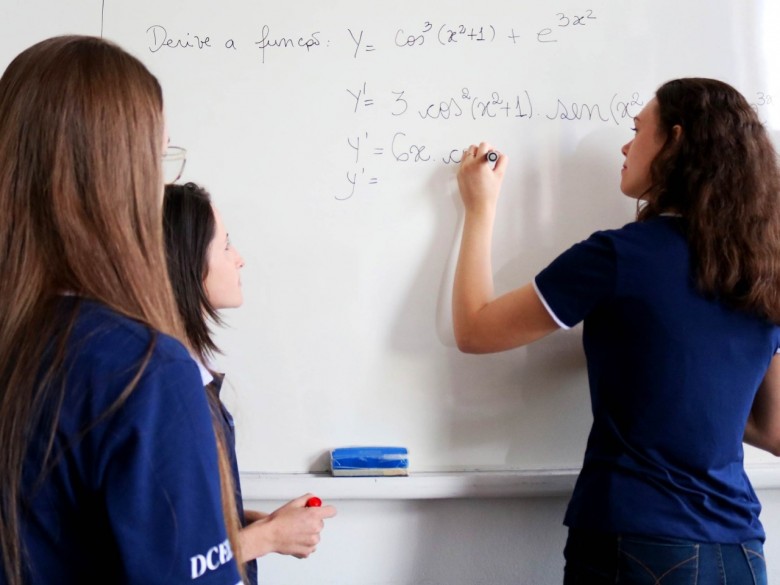 Derive a função: y = cos³(x²+1) + e^3x²
y' = 3 cos²(x²+1). sen(x²
y' = 6x.
y' =